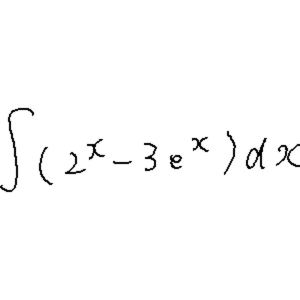 ∫(2^x - 3e^x)dx